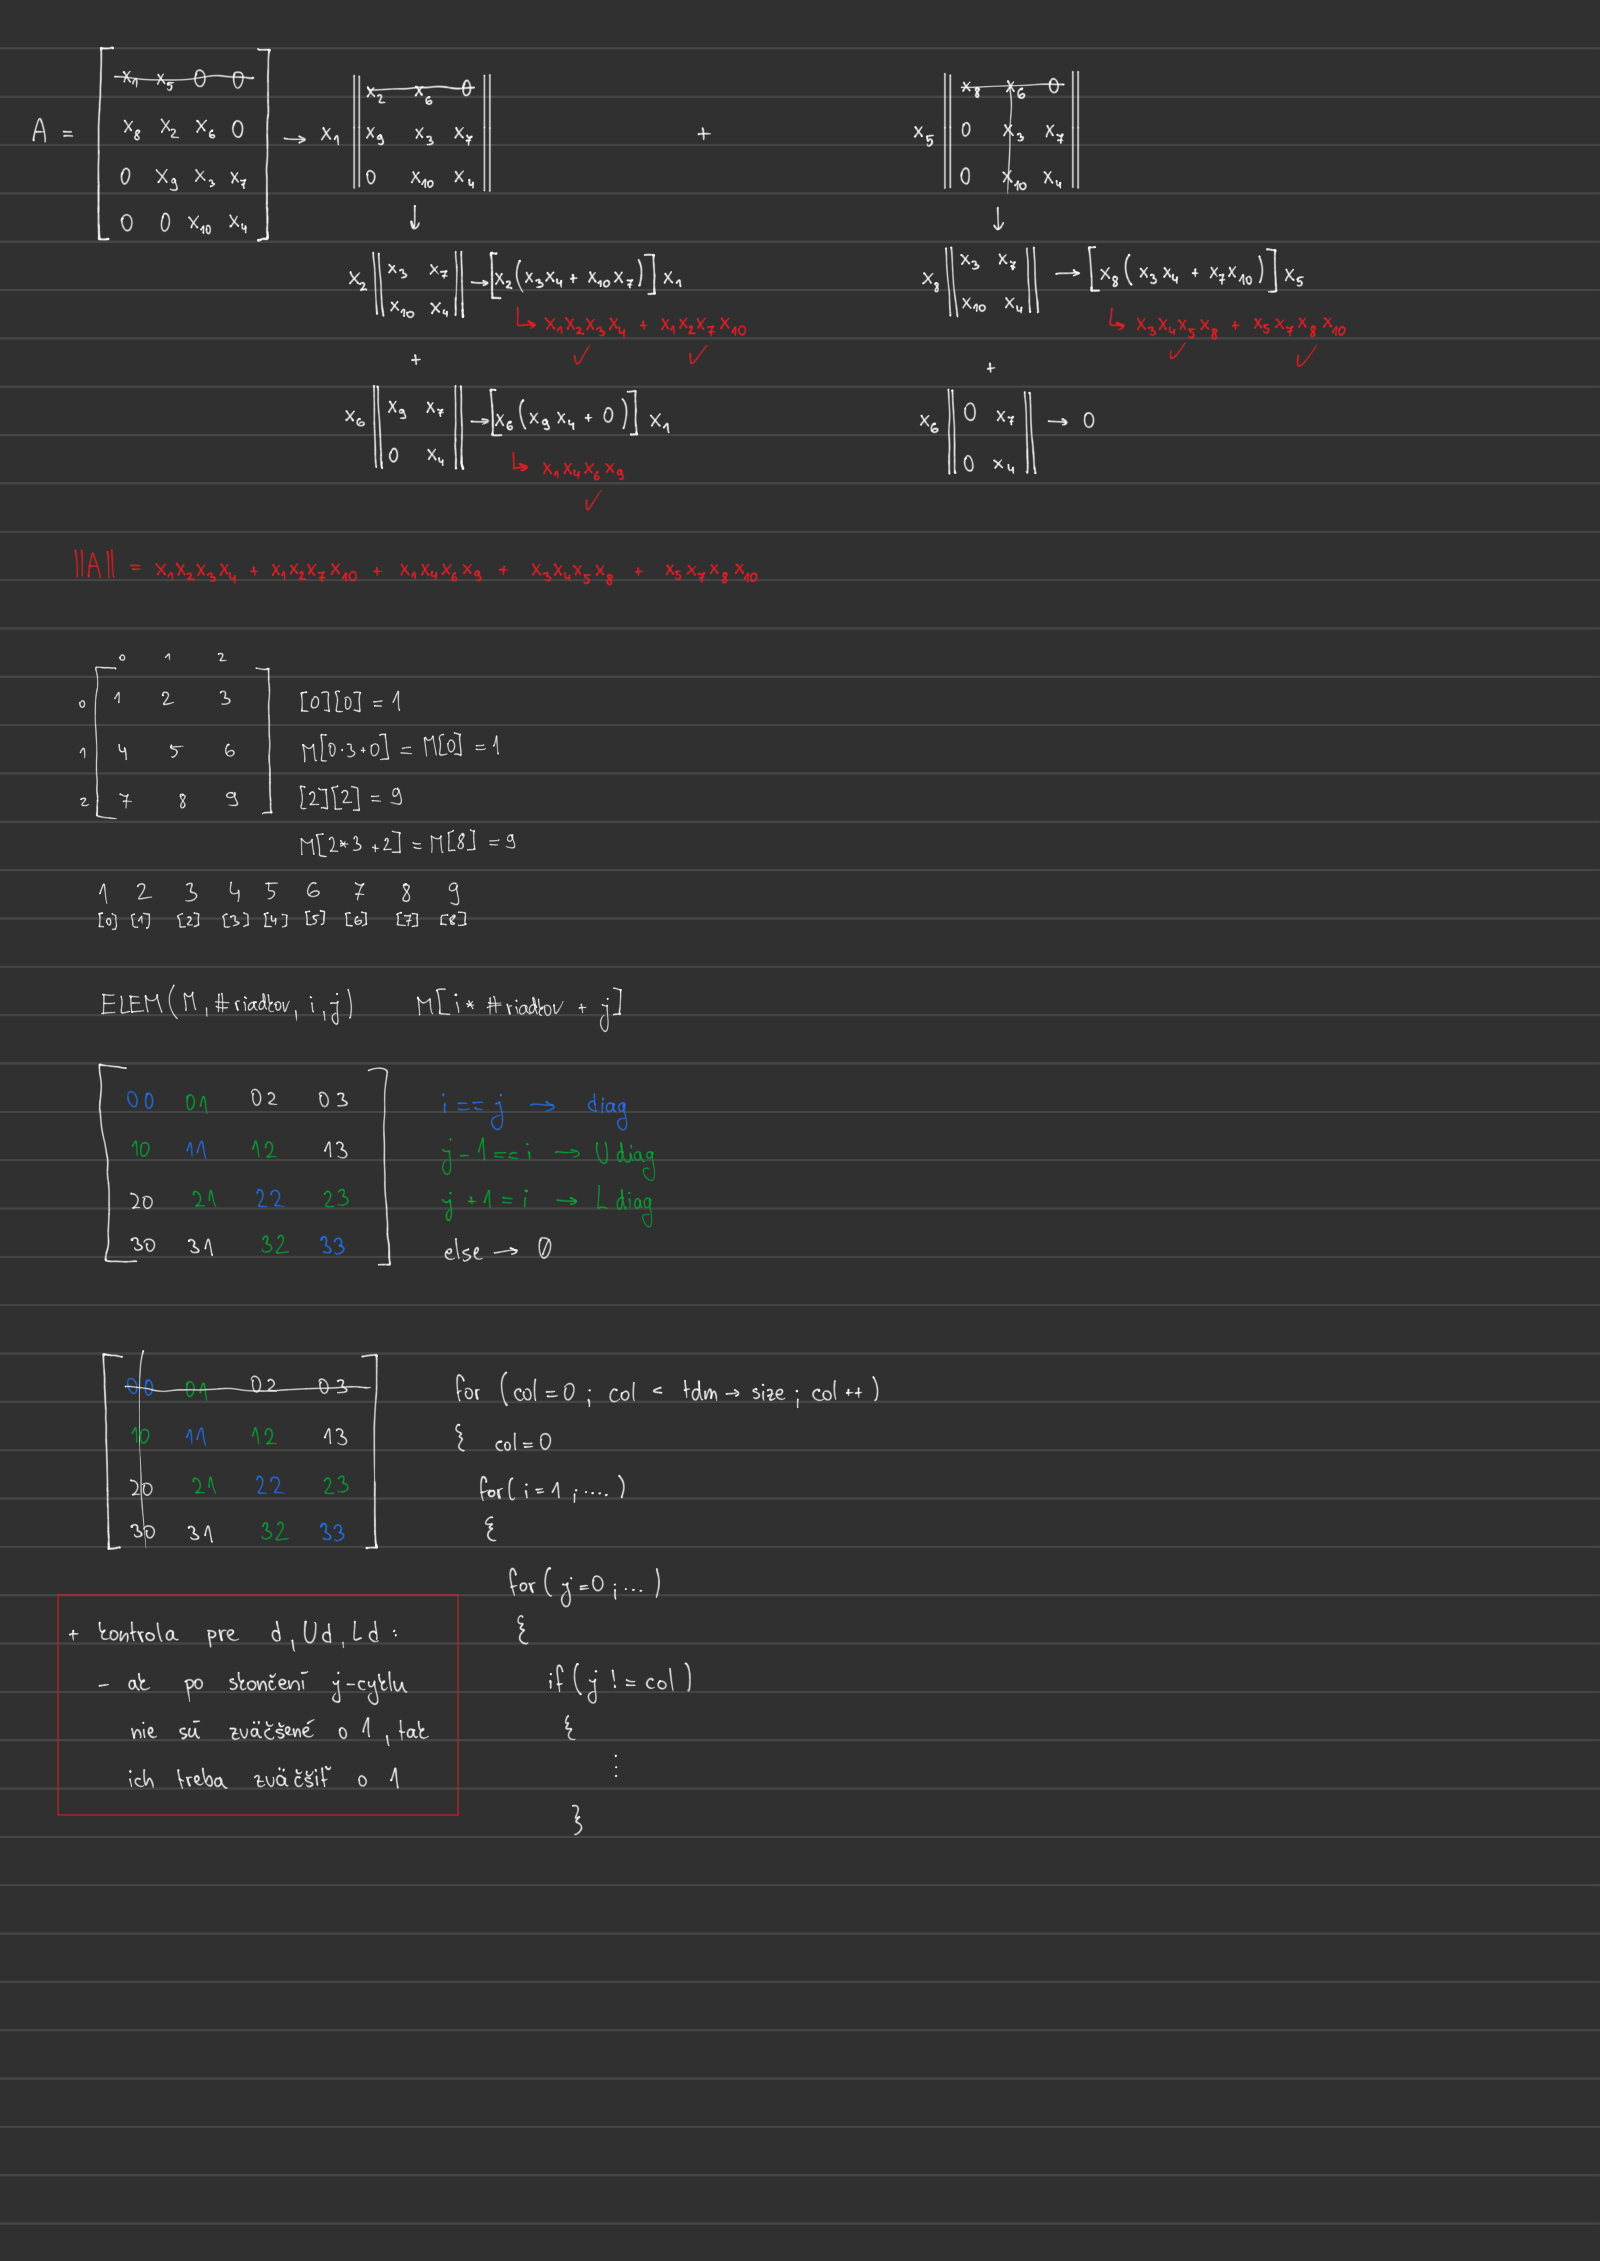 A = [ x₁ x₅ 0 0 ; x₈ x₂ x₆ 0 ; 0 x₉ x₃ x₇ ; 0 0 x₁₀ x₄ ] → x₁ || x₂ x₆ 0 ; x₉ x₃ x₇ ; 0 x₁₀ x₄ || + x₅ || x₈ x₆ 0 ; 0 x₃ x₇ ; 0 x₁₀ x₄ ||
↓ ↓
x₂ || x₃ x₇ ; x₁₀ x₄ || → [x₂(x₃x₄ + x₁₀x₇)] x₁
↳ x₁x₂x₃x₄ + x₁x₂x₇x₁₀
✓ ✓
+
x₆ || x₉ x₇ ; 0 x₄ || → [x₆(x₉x₄ + 0)] x₁
↳ x₁x₄x₆x₉
✓
x₈ || x₃ x₇ ; x₁₀ x₄ || → [x₈(x₃x₄ + x₇x₁₀)] x₅
↳ x₃x₄x₅x₈ + x₅x₇x₈x₁₀
✓ ✓
+
x₆ || 0 x₇ ; 0 x₄ || → 0
||A|| = x₁x₂x₃x₄ + x₁x₂x₇x₁₀ + x₁x₄x₆x₉ + x₃x₄x₅x₈ + x₅x₇x₈x₁₀
0 1 2
0 1 2 3 [0][0] = 1
M[0·3+0] = M[0] = 1
1 4 5 6
2 7 8 9 [2][2] = 9
M[2*3+2] = M[8] = 9
1 2 3 4 5 6 7 8 9
[0] [1] [2] [3] [4] [5] [6] [7] [8]
ELEM(M, #riadkov, i, j) M[i* #riadkov + j]
00 01 02 03 i == j → diag
10 11 12 13 j-1 == i → Udiag
20 21 22 23 j+1 = i → Ldiag
30 31 32 33 else → 0
00 01 02 03 for (col=0 ; col < tdm→size ; col++)
10 11 12 13 { col=0
20 21 22 23 for( i=1 ;....)
30 31 32 33 {
for( j=0 ;...)
{
if( j != col)
{
⋮
}
+ kontrola pre d, Ud, Ld :
- ak po skončení j-cyklu
nie sú zväčšené o 1, tak
ich treba zväčšiť o 1